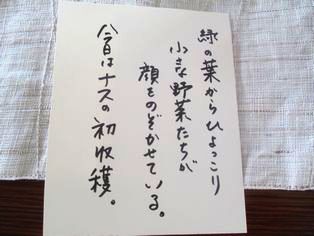 緑の葉からひょっこり
小さな野菜たちが
顔をのぞかせている。
今日はナスの初収穫。